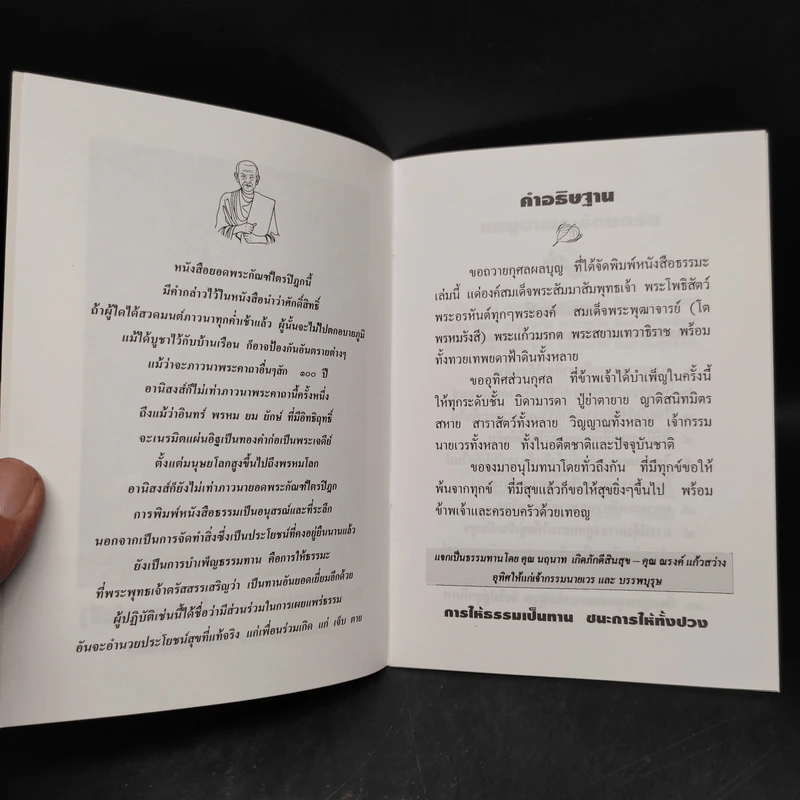 หนังสือยอดพระกัณฑ์ไตรปิฎกนี้
มีคำกล่าวไว้ในหนังสือนำว่าศักดิ์สิทธิ์
ถ้าผู้ใดได้สวดมนต์ภาวนาทุกค่ำเช้าแล้ว ผู้นั้นจะไม่ไปตกอบายภูมิ
แม้ได้บูชาไว้กับบ้านเรือน ก็อาจป้องกันอันตรายต่างๆ
แม้ว่าจะภาวนาพระคาถาอื่นๆสัก ๑๐๐ ปี
อานิสงส์ก็ไม่เท่าภาวนาพระคาถานี้ครั้งหนึ่ง
ถึงแม้ว่าอินทร์ พรหม ยม ยักษ์ ที่มีอิทธิฤทธิ์
จะเนรมิตแผ่นอิฐเป็นทองคำก่อเป็นพระเจดีย์
ตั้งแต่มนุษยโลกสูงขึ้นไปถึงพรหมโลก
อานิสงส์ก็ยังไม่เท่าภาวนายอดพระกัณฑ์ไตรปิฎก
การพิมพ์หนังสือธรรมเป็นอนุสรณ์และที่ระลึก
นอกจากเป็นการจัดทำสิ่งซึ่งเป็นประโยชน์ที่คงอยู่ยืนนานแล้ว
ยังเป็นการบำเพ็ญธรรมทาน คือการให้ธรรมะ
ที่พระพุทธเจ้าตรัสสรรเสริญว่า เป็นทานอันยอดเยี่ยมอีกด้วย
ผู้ปฏิบัติเช่นนี้ได้ชื่อว่ามีส่วนร่วมในการเผยแพร่ธรรม
อันจะอำนวยประโยชน์สุขที่แท้จริง แก่เพื่อนร่วมเกิด แก่ เจ็บ ตาย
คำอธิษฐาน
ขอถวายกุศลผลบุญ ที่ได้จัดพิมพ์หนังสือธรรมะ
เล่มนี้ แด่องค์สมเด็จพระสัมมาสัมพุทธเจ้า พระโพธิสัตว์
พระอรหันต์ทุกๆพระองค์ สมเด็จพระพุฒาจารย์ (โต
พรหมรังสี) พระแก้วมรกต พระสยามเทวาธิราช พร้อม
ทั้งทวยเทพยดาฟ้าดินทั้งหลาย
ขออุทิศส่วนกุศล ที่ข้าพเจ้าได้บำเพ็ญในครั้งนี้
ให้ทุกระดับชั้น บิดามารดา ปู่ย่าตายาย ญาติสนิทมิตร
สหาย สาราสัตว์ทั้งหลาย วิญญาณทั้งหลาย เจ้ากรรม
นายเวรทั้งหลาย ทั้งในอดีตชาติและปัจจุบันชาติ
ขอจงมาอนุโมทนาโดยทั่วถึงกัน ที่มีทุกข์ขอให้
พ้นจากทุกข์ ที่มีสุขแล้วก็ขอให้สุขยิ่งๆขึ้นไป พร้อม
ข้าพเจ้าและครอบครัวด้วยเทอญ
แจกเป็นธรรมทานโดย คุณ นฤนาท เกิดภักดีสินสุข – คุณ ณรงค์ แก้วสว่าง
อุทิศให้แก่เจ้ากรรมนายเวร และ บรรพบุรุษ
การให้ธรรมเป็นทาน ชนะการให้ทั้งปวง